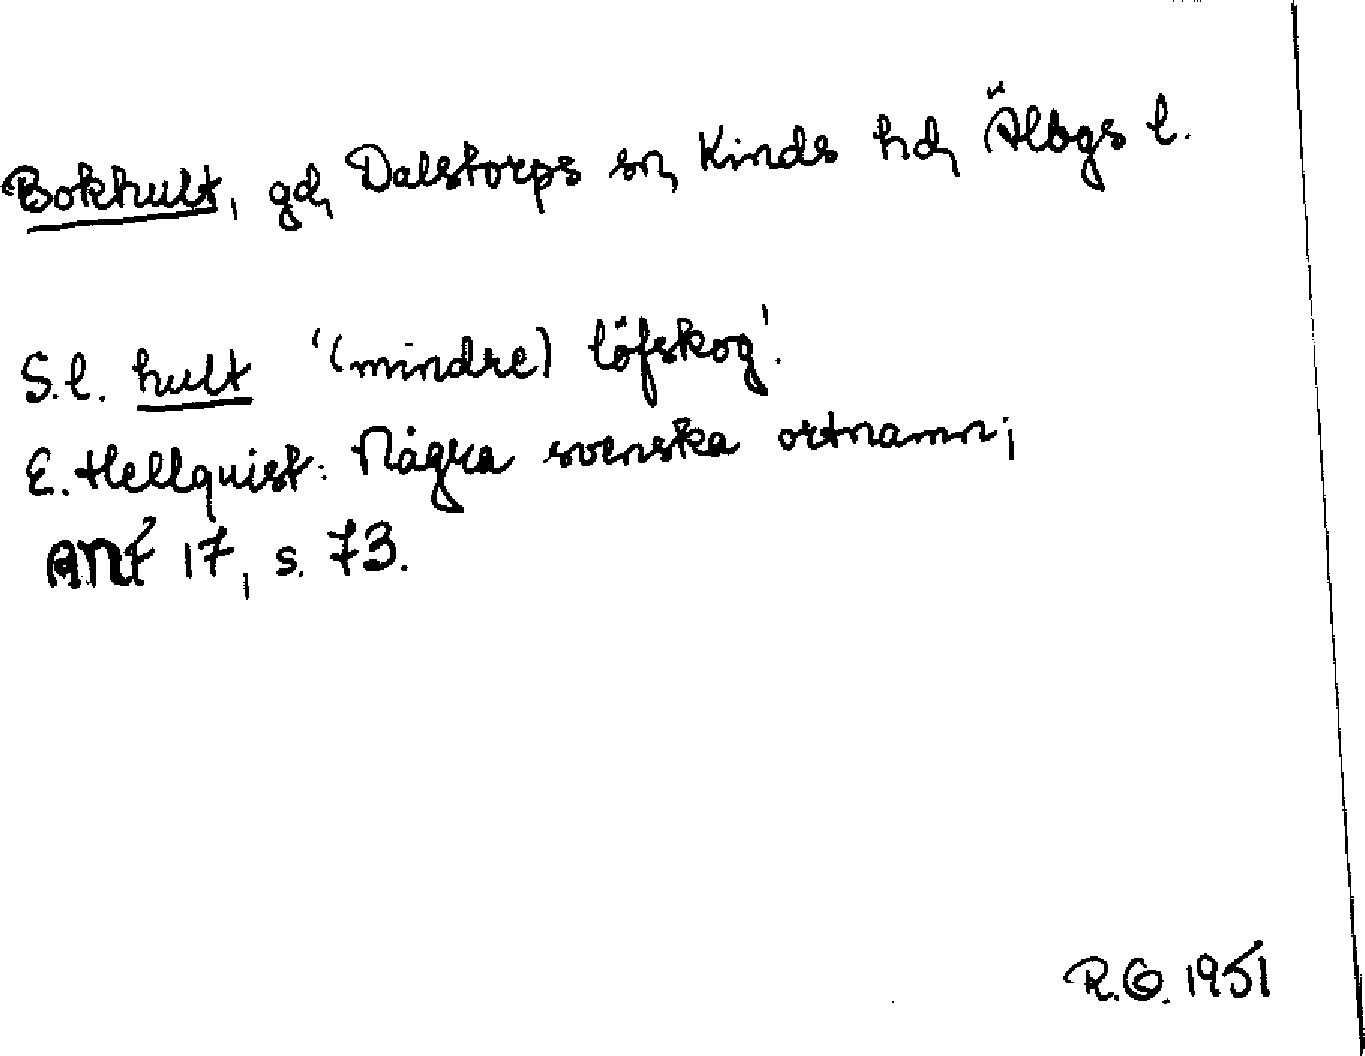 Bokhult, gd, Dalstorps sn, Kinds hd, Älvbgs l.
S.l. hult '(mindre) löfskog'.
E. Hellquist: Några svenska ortnamn;
ANF 17, s. 73.
R.G. 1951